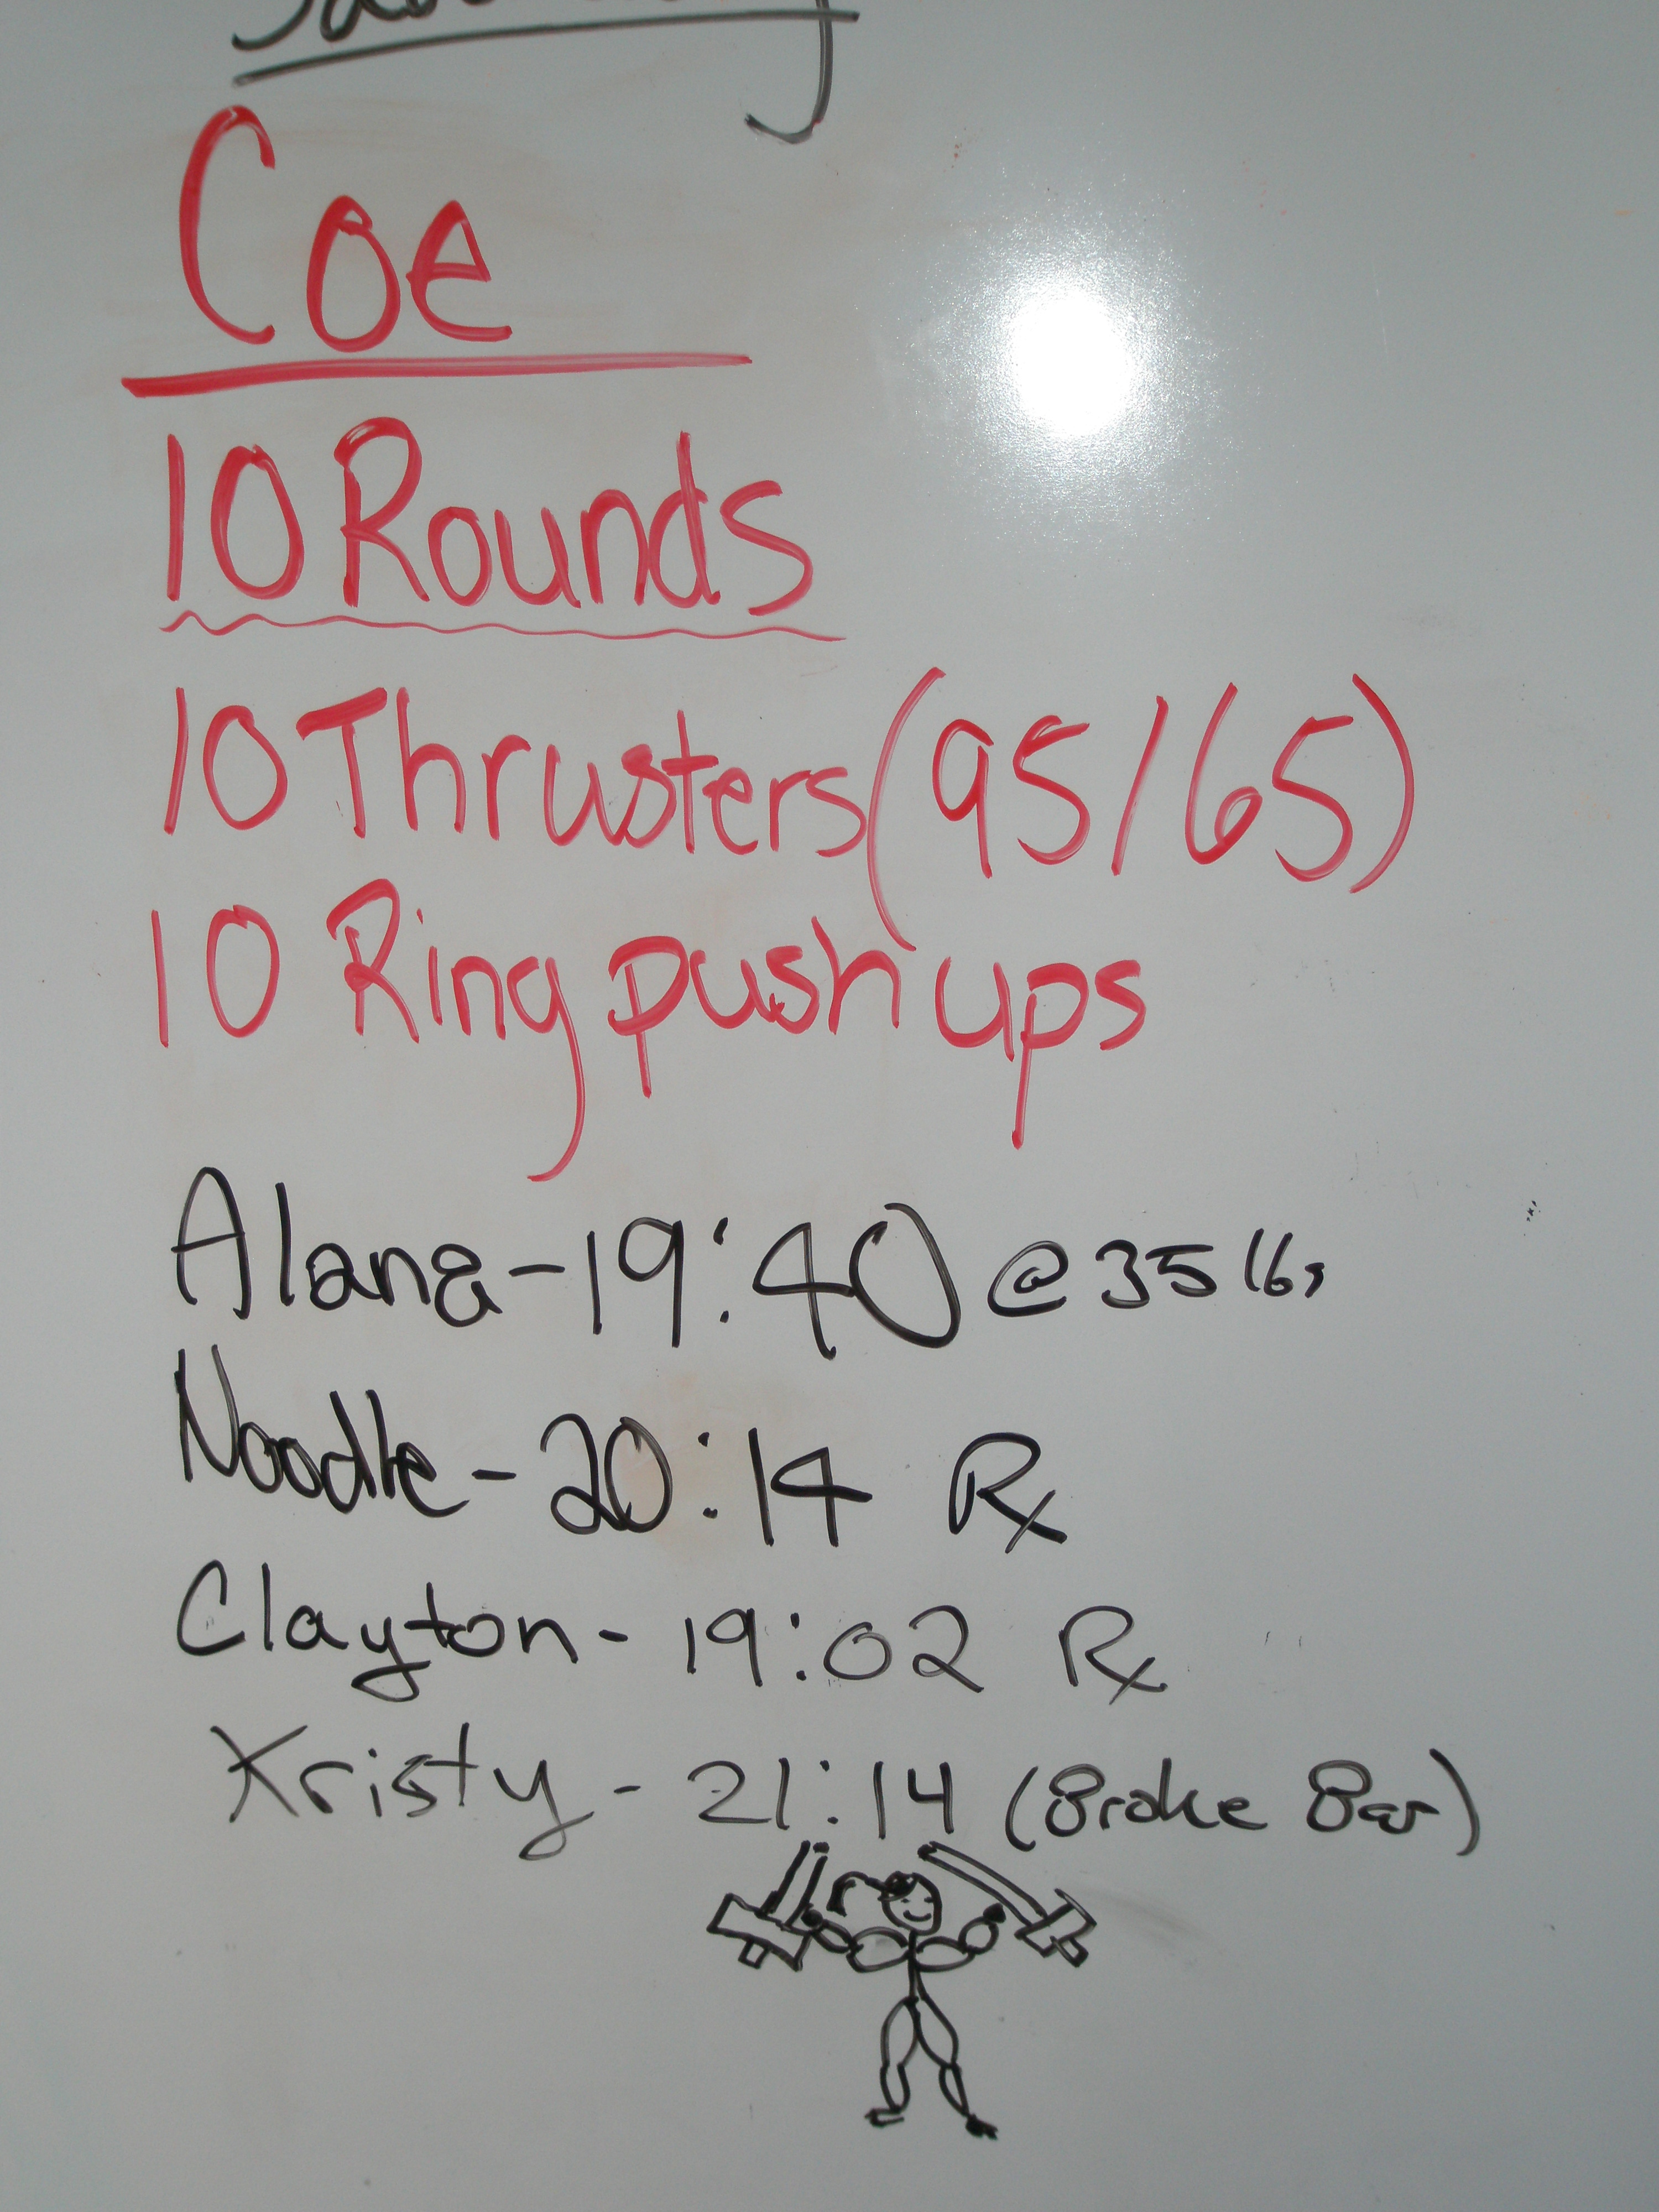 Coe
10 Rounds
10 Thrusters (95/65)
10 Ring push ups
Alana - 19:40 @ 35 lbs
Noodle - 20:14 Rx
Clayton - 19:02 Rx
Kristy - 21:14 (Broke Bar)